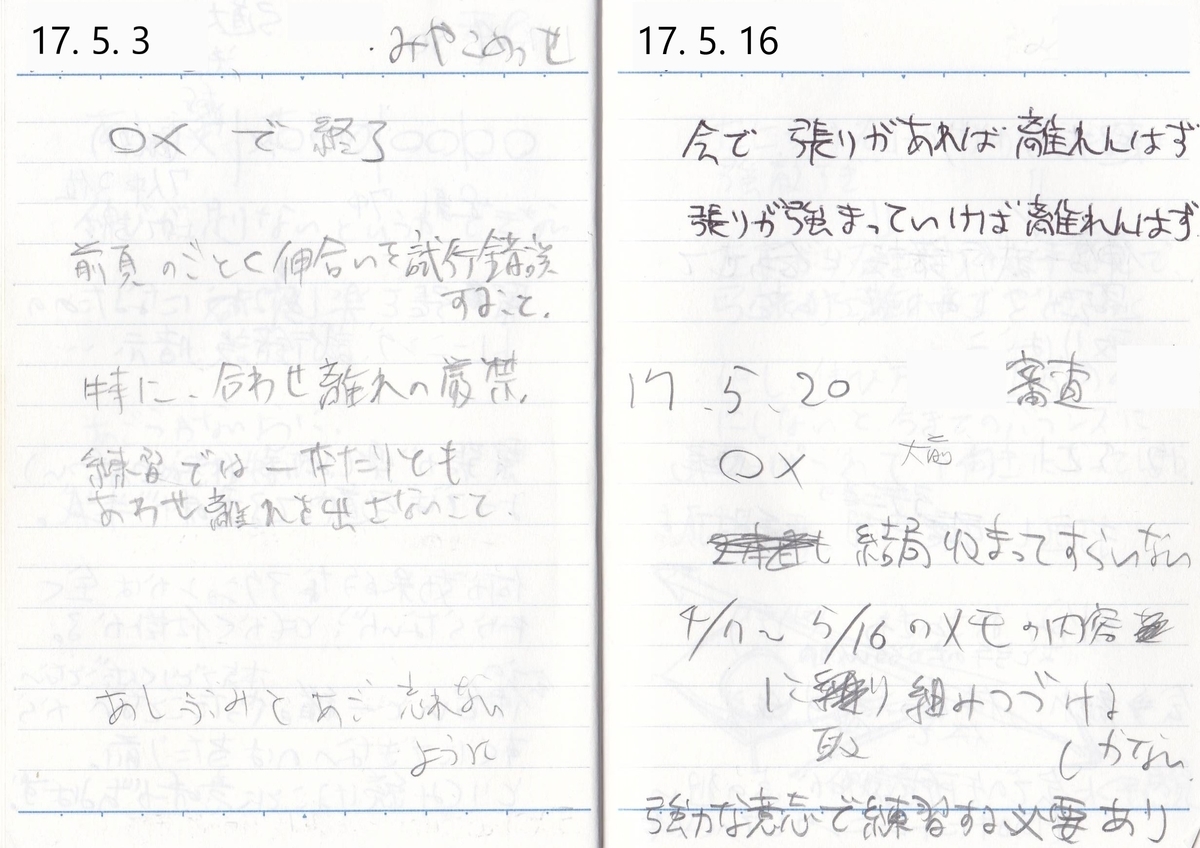 17. 5. 3
・みやこめっせ
○× で終了
前頁のごとく伸合いを試行錯誤
すること。
特に、合わせ離れの厳禁。
練習では一本たりとも
あわせ離れを出さないこと。
あしぶみとあご忘れない
ように
17. 5. 16
会で 張りがあれば 離れんはず
張りが強まっていけば 離れんはず
17. 5. 20 審査
○× 大前
も 結局 収まってすらいない
4/17～5/16 のメモの内容
に り組みつづける
取 しかない。
強力な意志で練習する必要あり